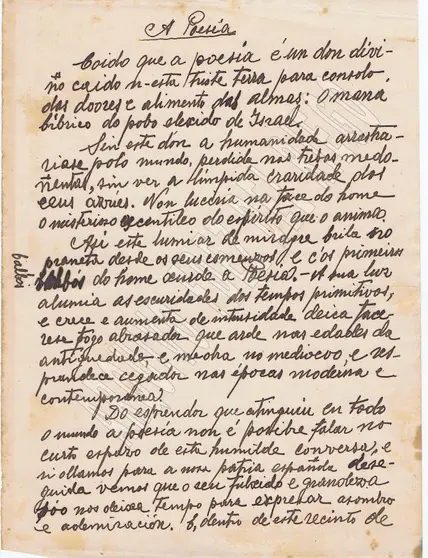 A Poesía
Coido que a poesía é un don divi-
ño caido n-esta triste terra para consolo
dos doores e alimento das almas: O maná
bíbrico do pobo elexido de Israel.
Sin este don a humanidade arrastra-
ríase polo mundo, perdida nas tebras medo-
ñentas, sin ver a límpida craridade dos
ceus azues. Non lucería na face do home
o misterioso centileo do esprito que o anima.
Ahí este lumiar de miragre brila no
praneta desde os seus comenzos, e c'os primeiros
balbos
do home xurde a Poesía. A sua luz
alumia as escuridades dos tempos primitivos,
e crece e aumenta de intensidade deica face-
rese fogo abrasador que arde nas edades da
antiguedade e medra no medioevo, e res-
prandece cegador nas épocas moderna e
contemporánea.
Do esprendor que atinguiu en todo
o mundo a poesía non é posibre falar no
curto espazo de esta humilde conversa, e
si ollamos para a nosa patria española dese-
guida vemos que o seu fulxido e grandeza
nos deixa tempo para expresar asombro
e ademiración. E, dentro de este recinto de